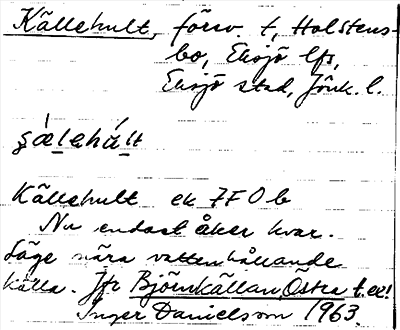 Källehult, försv. t, Holstens-
bo, Eksjö lfs,
Eksjö stad, Jönk. l.
ʂǽlehált
Källehult ek 7F0b
Nu endast åker kvar.
Läge nära vattenhållande
källa. Jfr Björnkällan Östra t.ex!
Inger Danielsson 1963